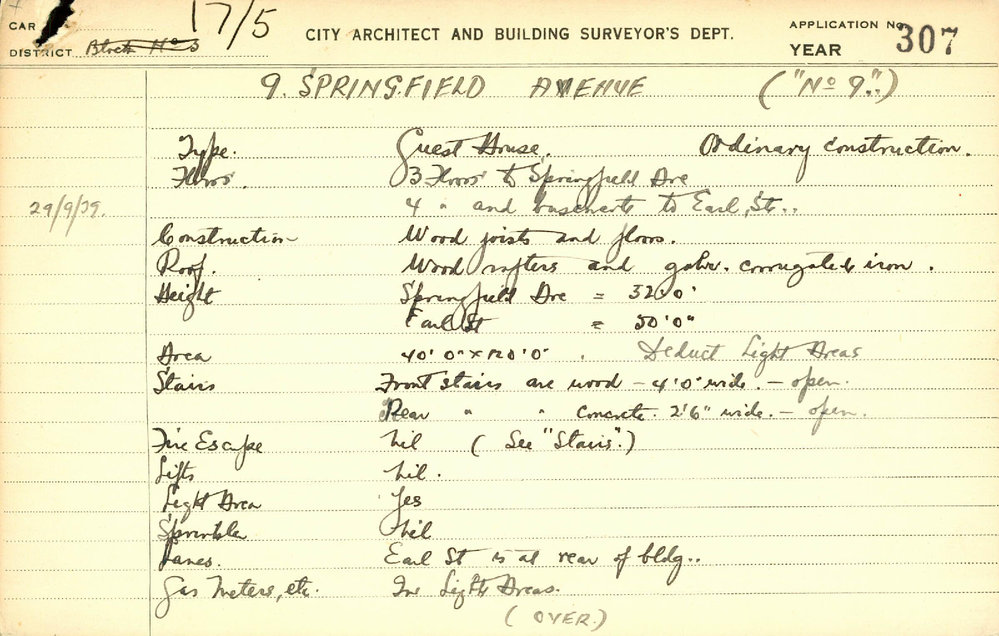 CAR 17/5 CITY ARCHITECT AND BUILDING SURVEYOR'S DEPT. APPLICATION No. 307
DISTRICT Block No 3 YEAR
9. SPRINGFIELD AVENUE ("No 9".)
Type. Guest House. Ordinary construction.
Floors. 3 Floors to Springfield Ave
29/9/39. 4 " and basements to Earl, St..
Construction Wood joists and floors.
Roof. Wood rafters and galv. corrugated iron.
Height Springfield Ave = 32'0"
Earl St = 50'0"
Area 40'0" x 120'0". Deduct Light Areas
Stairs Front stairs are wood - 4'0" wide. - open.
Rear " " concrete. 2'6" wide. - open.
Fire Escape Nil (See "Stairs".)
Lifts Nil.
Light Area Yes
Sprinkler Nil
Lanes. Earl St is at rear of bldg..
Gas Meters, etc. In Light Areas.
(OVER.)